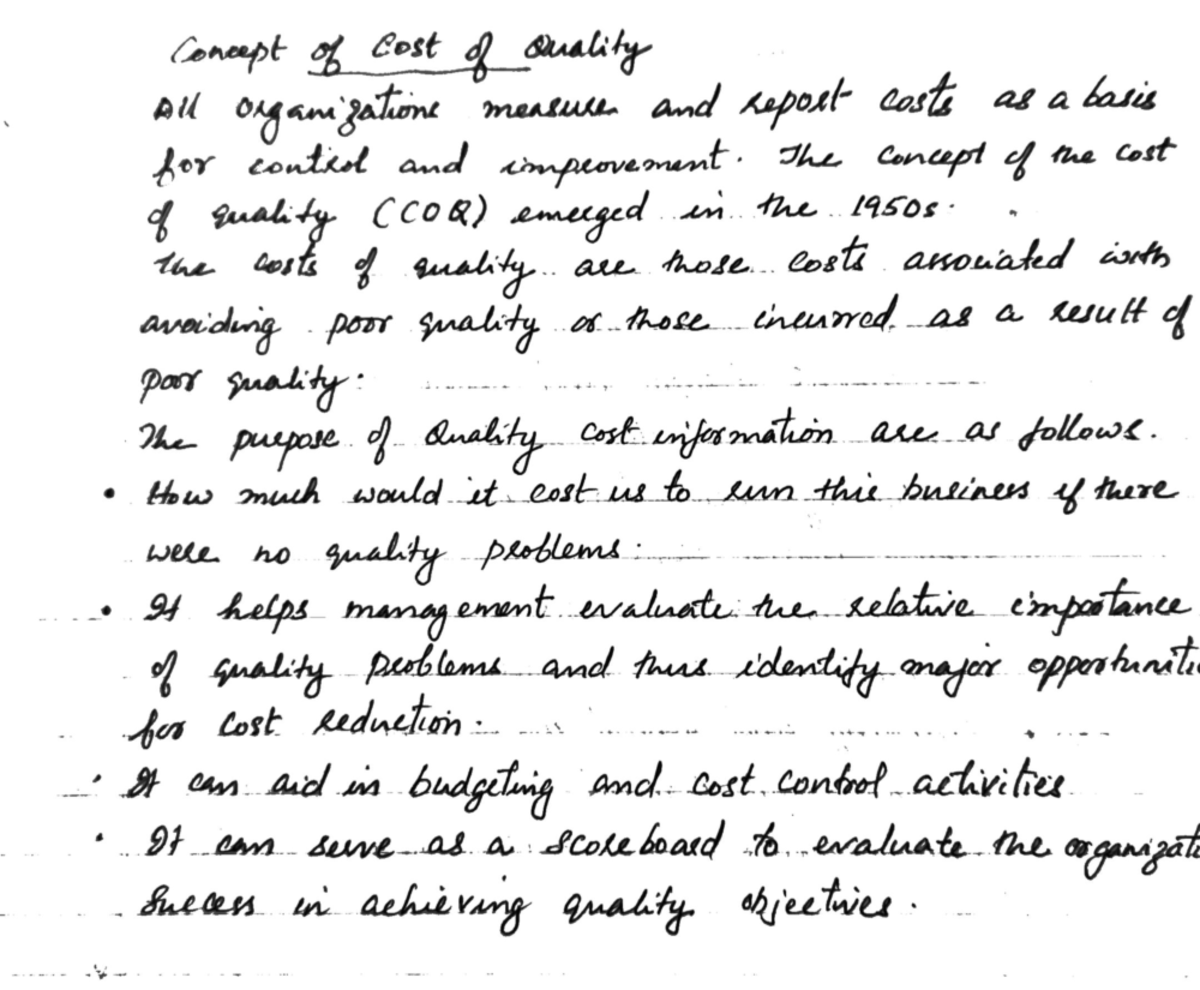 Concept of Cost of Quality
All organizations measure and report costs as a basis
for control and improvement. The concept of the cost
of quality (COQ) emerged in the 1950s.
The costs of quality are those costs associated with
avoiding poor quality or those incurred as a result of
poor quality.
The purpose of Quality cost information are as follows.
• How much would it cost us to run this business if there
were no quality problems.
• It helps management evaluate the relative importance
of quality problems and thus identify major opportuniti
for cost reduction.
• It can aid in budgeting and cost control activities
• It can serve as a scoreboard to evaluate the organizati
Success in achieving quality objectives.